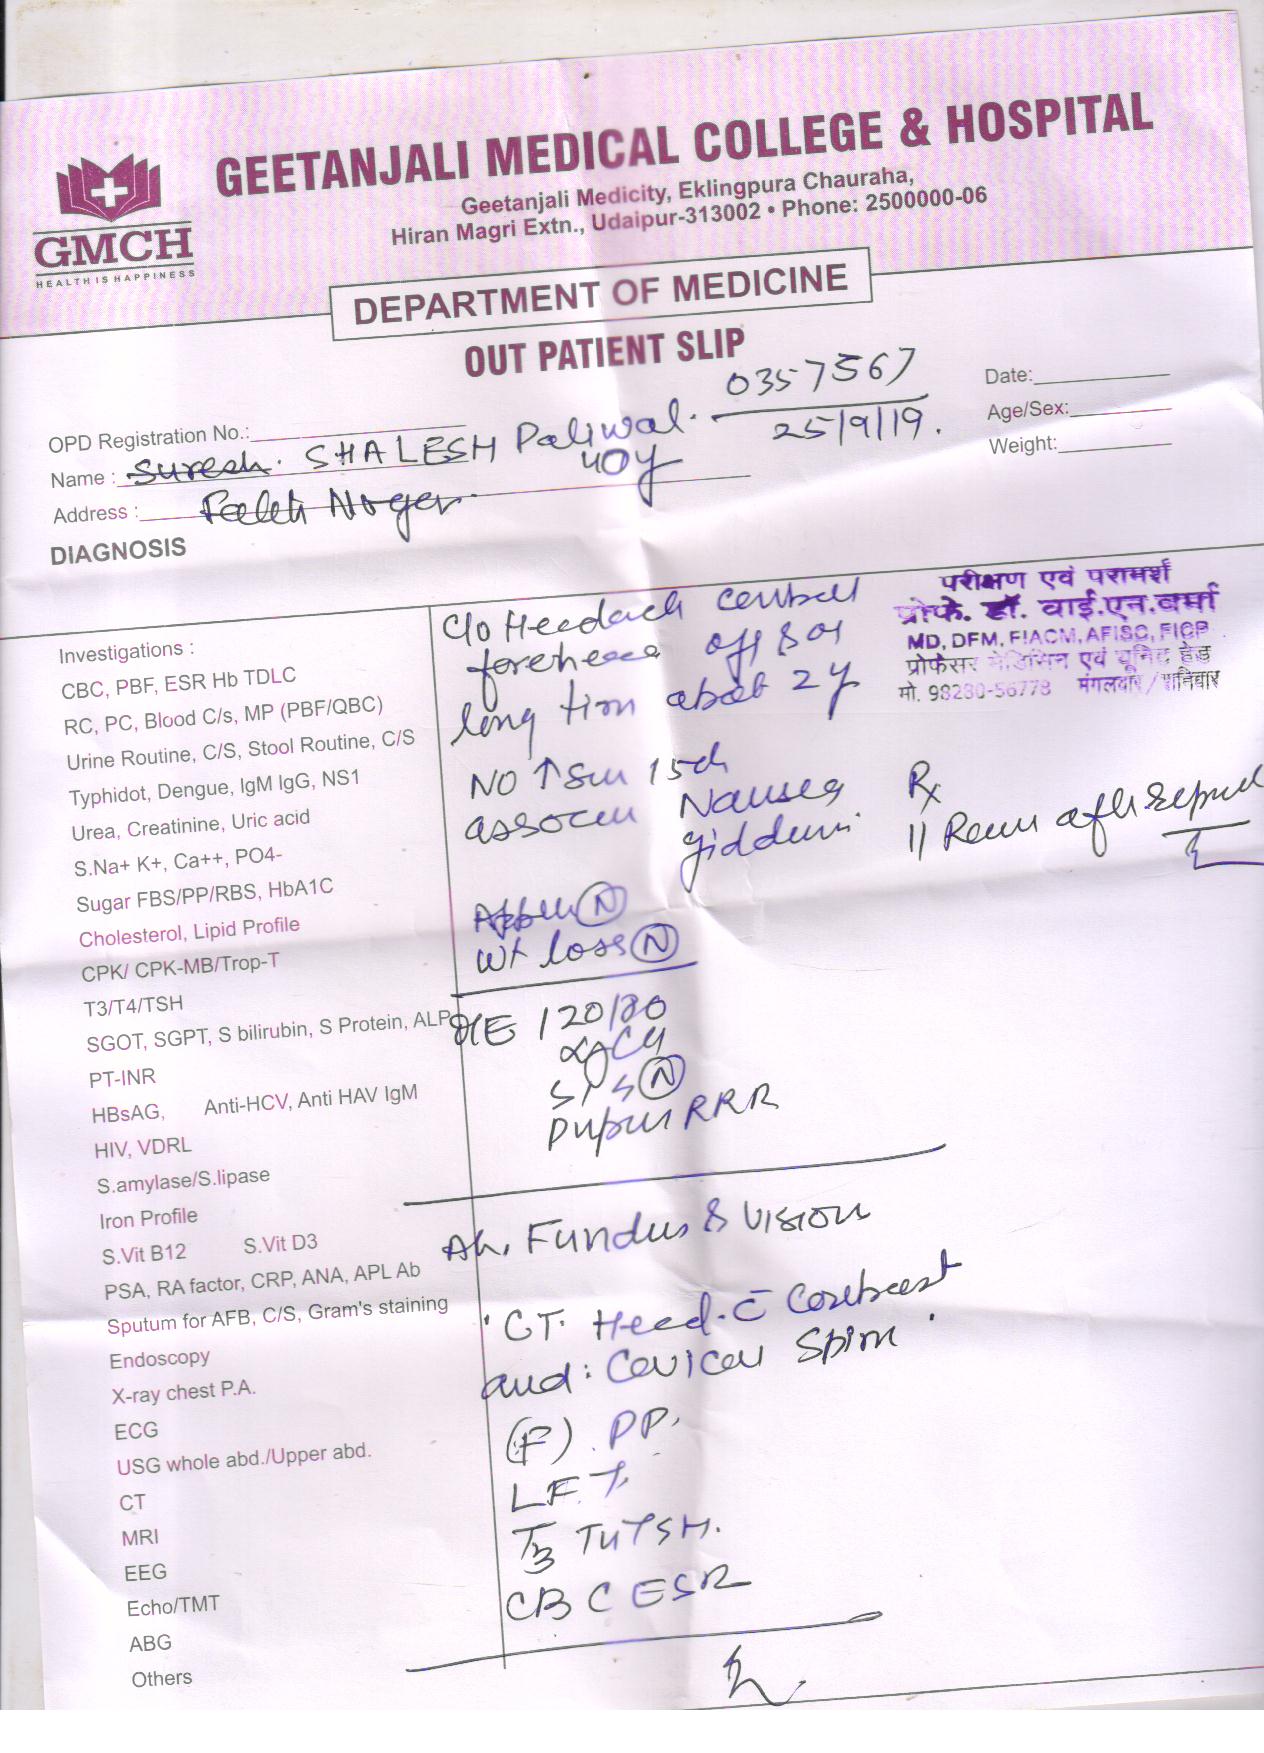 GEETANJALI MEDICAL COLLEGE & HOSPITAL
Geetanjali Medicity, Eklingpura Chauraha,
Hiran Magri Extn., Udaipur-313002 • Phone: 2500000-06
GMCH
HEALTH IS HAPPINESS
DEPARTMENT OF MEDICINE
OUT PATIENT SLIP
OPD Registration No.: 0357567
25/9/19.
Date:
Age/Sex:
Weight:
Name : Suresh. SHALESH Paliwal.
40y
Address :
DIAGNOSIS
परीक्षण एवं परामर्श
प्रोफे. डॉ. वाई.एन.वर्मा
MD, DFM, FIACM, AFISC, FICP
प्रोफेसर मेडिसिन एवं यूनिट हेड
मो. 98280-56778 मंगलवार / शनिवार
Investigations :
CBC, PBF, ESR Hb TDLC
RC, PC, Blood C/s, MP (PBF/QBC)
Urine Routine, C/S, Stool Routine, C/S
Typhidot, Dengue, IgM IgG, NS1
Urea, Creatinine, Uric acid
S.Na+ K+, Ca++, PO4-
Sugar FBS/PP/RBS, HbA1C
Cholesterol, Lipid Profile
CPK/ CPK-MB/Trop-T
T3/T4/TSH
SGOT, SGPT, S bilirubin, S Protein, ALP
PT-INR
HBsAG, Anti-HCV, Anti HAV IgM
HIV, VDRL
S.amylase/S.lipase
Iron Profile
S.Vit B12 S.Vit D3
PSA, RA factor, CRP, ANA, APL Ab
Sputum for AFB, C/S, Gram's staining
Endoscopy
X-ray chest P.A.
ECG
USG whole abd./Upper abd.
CT
MRI
EEG
Echo/TMT
ABG
Others
C/o Headach
off & on
long about 2y
NO ↑ 15d
Nausea
Wt loss (N)
O/E 120/80
(N)
RRR
Fundus & Vision
CT. Head. c̄ Contrast
and :
(F) . PP.
LFT
T3 T4 TSH.
CBC ESR
Rx